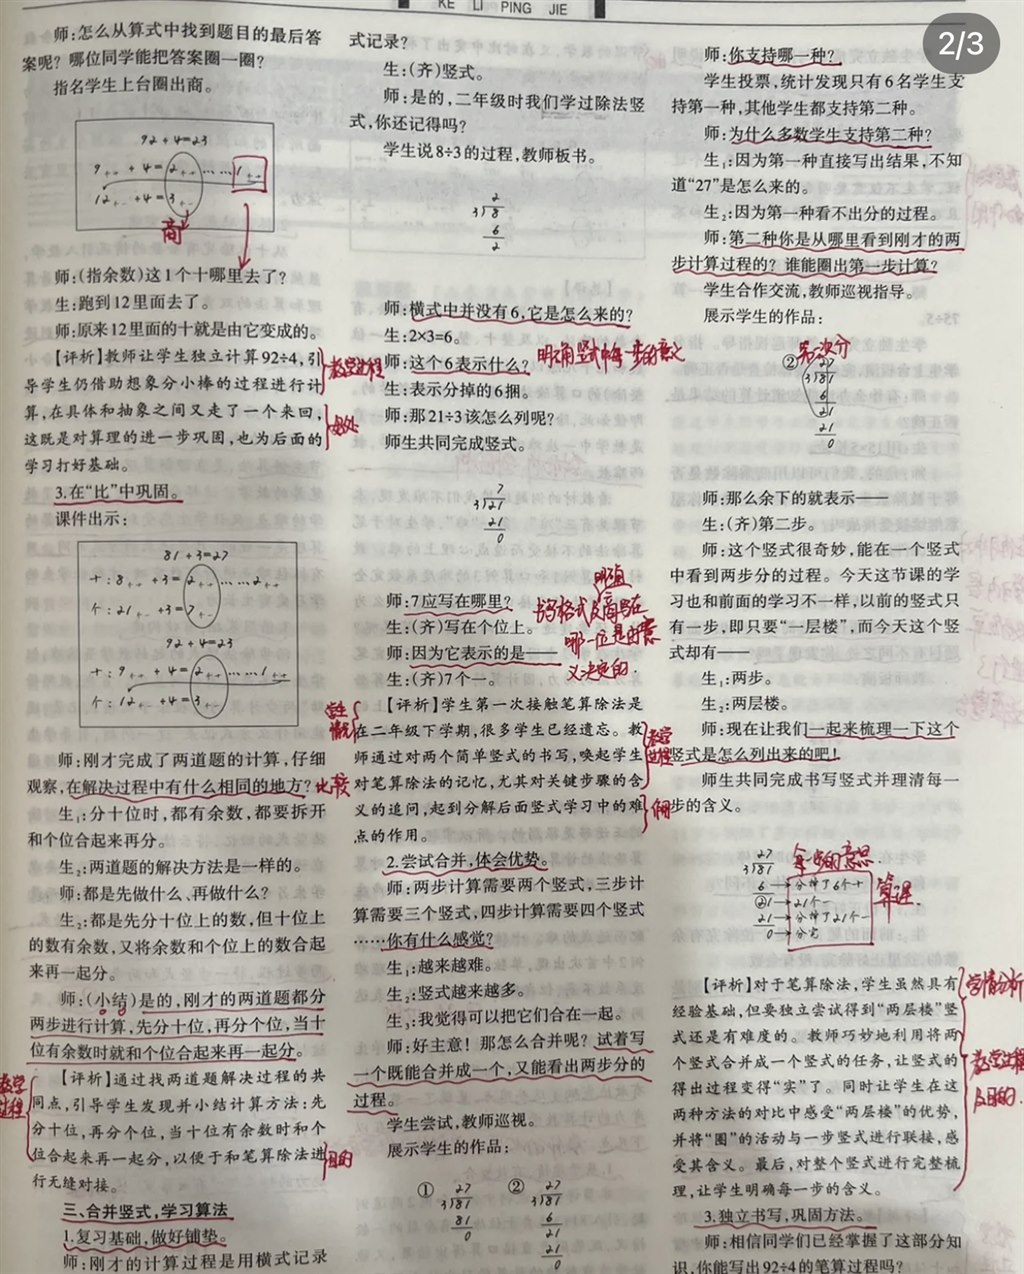 KE LI PING JIE
2/3
师:怎么从算式中找到题目的最后答
案呢? 哪位同学能把答案圈一圈?
指名学生上台圈出商。
92÷4=23
9 ÷4=2 …… 1
12 ÷4=3
商
师:(指余数)这1个十哪里去了?
生:跑到12里面去了。
师:原来12里面的十就是由它变成的。
【评析】教师让学生独立计算92÷4,引
导学生仍借助想象分小棒的过程进行计
算,在具体和抽象之间又走了一个来回,
这既是对算理的进一步巩固,也为后面的
学习打好基础。
教学过程
好处
3.在“比”中巩固。
课件出示:
81÷3=27
十:8 ÷3=2 …… 2
个:21 ÷3=7
92÷4=23
十:9 ÷4=2 …… 1
个:12 ÷4=3
师:刚才完成了两道题的计算,仔细
观察,在解决过程中有什么相同的地方?
比较
生1:分十位时,都有余数,都要拆开
和个位合起来再分。
生2:两道题的解决方法是一样的。
师:都是先做什么、再做什么?
生2:都是先分十位上的数,但十位上
的数有余数,又将余数和个位上的数合起
来再一起分。
师:(小结)是的,刚才的两道题都分
两步进行计算,先分十位,再分个位,当十
位有余数时就和个位合起来再一起分。
【评析】通过找两道题解决过程的共
同点,引导学生发现并小结计算方法:先
分十位,再分个位,当十位有余数时和个
位合起来再一起分,以便于和笔算除法进
行无缝对接。
教学
过程
目的
三、合并竖式,学习算法
1.复习基础,做好铺垫。
师:刚才的计算过程是用横式记录
式记录?
生:(齐)竖式。
师:是的,二年级时我们学过除法竖
式,你还记得吗?
学生说8÷3的过程,教师板书。
2
3 8
6
2
师:横式中并没有6,它是怎么来的?
生:2×3=6。
师:这个6表示什么?
明确竖式中每一步的意义
生:表示分掉的6捆。
师:那21÷3该怎么列呢?
师生共同完成竖式。
7
3 21
21
0
师:7应写在哪里?
生:(齐)写在个位上。
师:因为它表示的是——
生:(齐)7个一。
明确
书写格式及商写在
哪一位是由意
义决定的.
【评析】学生第一次接触笔算除法是
在二年级下学期,很多学生已经遗忘。教
师通过对两个简单竖式的书写,唤起学生
对笔算除法的记忆,尤其对关键步骤的含
义的追问,起到分解后面竖式学习中的难
点的作用。
学生
情况
教学
过程
作用
2.尝试合并,体会优势。
师:两步计算需要两个竖式,三步计
算需要三个竖式,四步计算需要四个竖式
……你有什么感觉?
生1:越来越难。
生2:竖式越来越多。
生3:我觉得可以把它们合在一起。
师:好主意! 那怎么合并呢? 试着写
一个既能合并成一个,又能看出两步分的
过程。
学生尝试,教师巡视。
展示学生的作品:
① 27
3 81
81
0
② 27
3 81
6
21
21
0
师:你支持哪一种?
学生投票,统计发现只有6名学生支
持第一种,其他学生都支持第二种。
师:为什么多数学生支持第二种?
生1:因为第一种直接写出结果,不知
道“27”是怎么来的。
生2:因为第一种看不出分的过程。
师:第二种你是从哪里看到刚才的两
步计算过程的? 谁能圈出第一步计算?
学生合作交流,教师巡视指导。
展示学生的作品:
第一次分
② 27
3 81
6
21
21
0
师:那么余下的就表示——
生:(齐)第二步。
师:这个竖式很奇妙,能在一个竖式
中看到两步分的过程。今天这节课的学
习也和前面的学习不一样,以前的竖式只
有一步,即只要“一层楼”,而今天这个竖
式却有——
生1:两步。
生2:两层楼。
师:现在让我们一起来梳理一下这个
竖式是怎么列出来的吧!
师生共同完成书写竖式并理清每一
步的含义。
每一步的意思.
27
3 81
6→分掉了6个十
21→21个一
21→分掉了21个一
0→分完
算理.
【评析】对于笔算除法,学生虽然具有
经验基础,但要独立尝试得到“两层楼”竖
式还是有难度的。教师巧妙地利用将两
个竖式合并成一个竖式的任务,让竖式的
得出过程变得“实”了。同时让学生在这
两种方法的对比中感受“两层楼”的优势,
并将“圈”的活动与一步竖式进行联接,感
受其含义。最后,对整个竖式进行完整梳
理,让学生明确每一步的含义。
学情分析
教学过程
及目的.
3.独立书写,巩固方法。
师:相信同学们已经掌握了这部分知
识,你能写出92÷4的笔算过程吗?